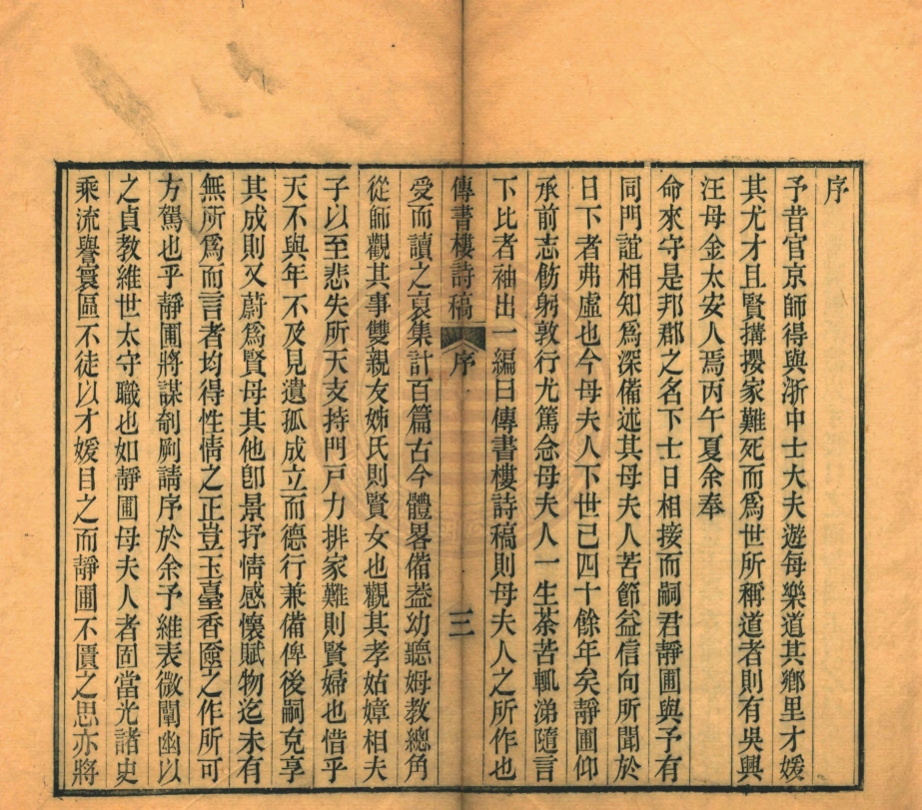 序
予昔官京師得與浙中士大夫遊每樂道其鄉里才媛
其尤才且賢搆攖家難死而爲世所稱道者則有吳興
汪母金太安人焉丙午夏余奉
命來守是邦郡之名下士日相接而嗣君靜圃與予有
同門誼相知爲深備述其母夫人苦節益信向所聞於
日下者弗虛也今母夫人下世已四十餘年矣靜圃仰
承前志飭躬敦行尤篤念母夫人一生荼苦輒涕隨言
下比者袖出一編曰傳書樓詩稿則母夫人之所作也
傳書樓詩稿 序 三
受而讀之裒集計百篇古今體畧備葢幼聽姆教總角
從師觀其事雙親友姊氏則賢女也觀其孝姑嫜相夫
子以至悲失所天支持門戸力排家難則賢婦也惜乎
天不與年不及見遺孤成立而德行兼備俾後嗣克享
其成則又蔚爲賢母其他卽景抒情感懷賦物迄未有
無所爲而言者均得性情之正豈玉臺香奩之作所可
方駕也乎靜圃將謀剞劂請序於余予維表微闡幽以
之貞教維世太守職也如靜圃母夫人者固當光諸史
乘流譽寰區不徒以才媛目之而靜圃不匱之思亦將